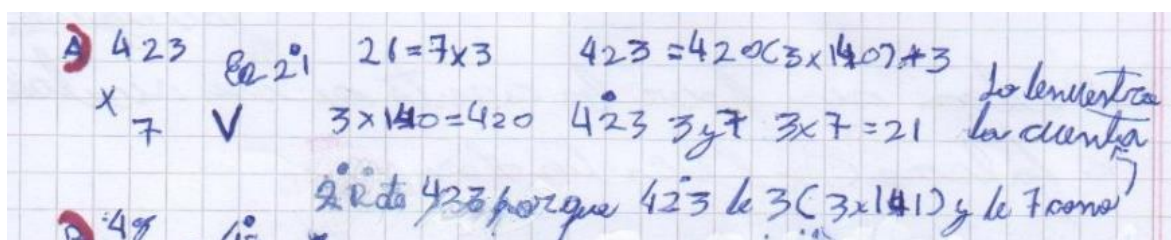 A) 423 Es 2̇1 21=7x3 423 =420(3x140)+3
x 7 V 3x140=420 42̇3 3 y 7 3x7=21 Lo demuestra la cuenta
de 423 porque 42̇3 de 3(3x141) y de 7 como